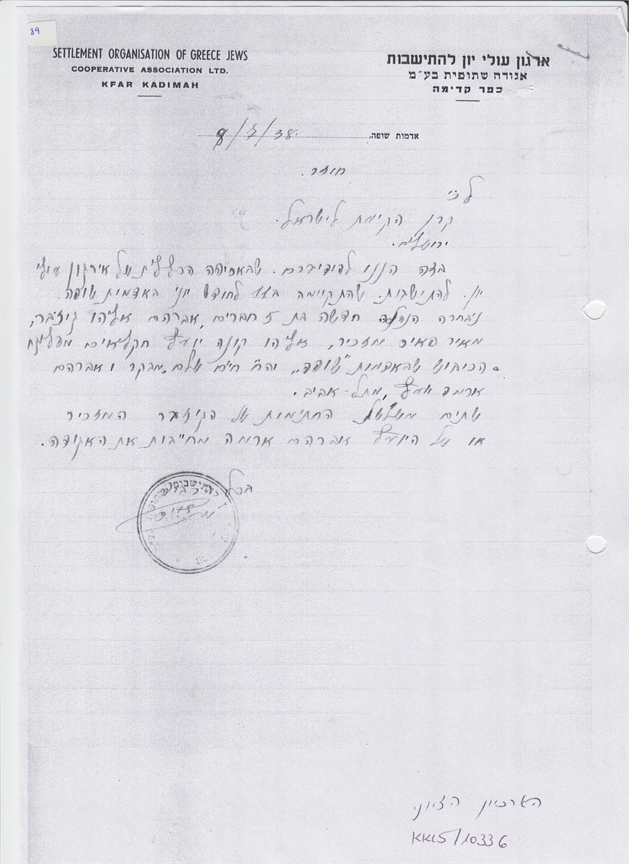 89
SETTLEMENT ORGANISATION OF GREECE JEWS
COOPERATIVE ASSOCIATION LTD.
KFAR KADIMAH
ארגון עולי יון להתישבות
אגודה שתופית בע״מ
כפר קדימה
אדמות שופה, 9/7/38
חוזר.
לכ׳
קרן הקימת לישראל.
ירושלים.
בזה הננו להודיעכם. שבאסיפה הכללית של אירגון עולי
יון. להתישבות שהתקיימה ב לחודש יוני באדמות שופה.
נבחרה הנהלה חדשה בת 5 חברים, אברהם אליהו גיזבר,
מאיר מזכיר, אליהו יועץ חקלאים
הכיבוש שבאדמות "שופה" והח׳ חיים מבקר ואברהם
ארמה יועץ, מתל-אביב.
שתים משלשת החתימות של הגיזבר המזכיר
או של היועץ אברהם ארמה מחייבות את האגודה.
הארכיון הציוני
KKL5/10336